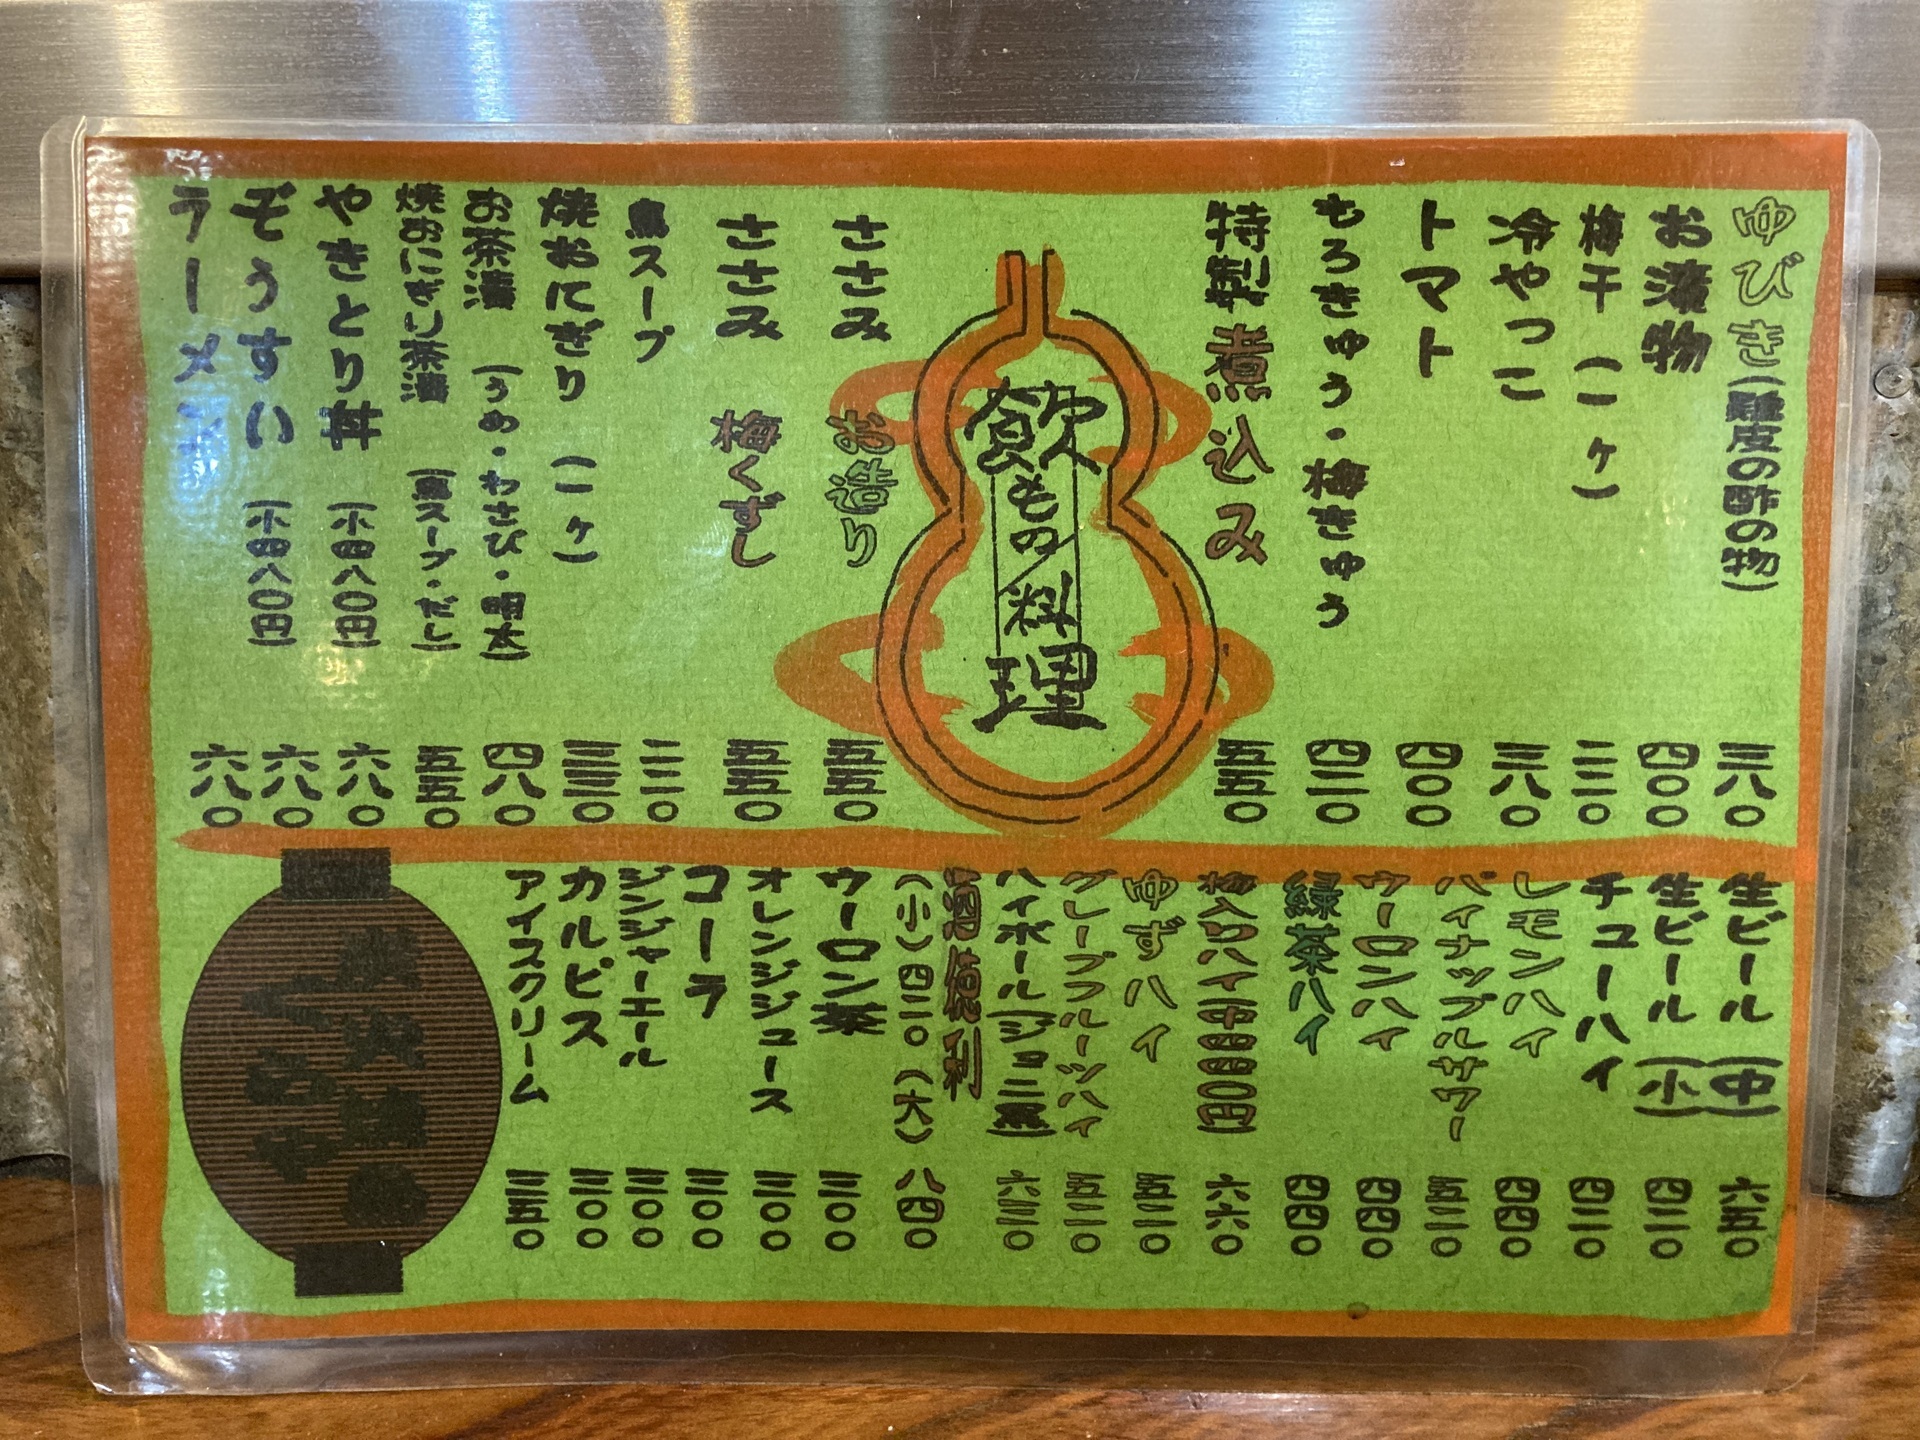 ゆびき(雞皮の酢の物) 三八〇
お漬物 四〇〇
梅干(一ヶ) 二二〇
冷やっこ 三八〇
トマト 四〇〇
もろきゅう・梅きゅう 四二〇
特製煮込み 五五〇
飲もの料理
ささみ お造り 五五〇
ささみ 梅くずし 五五〇
鳥スープ 二二〇
焼おにぎり(一ヶ) 三三〇
お茶漬(うめ・わさび・明太) 四八〇
焼おにぎり茶漬(鳥スープ・だし) 五五〇
やきとり丼(小四八〇円) 六八〇
ぞうすい(小四八〇円) 六八〇
ラーメン 六八〇
生ビール(中) 六五〇
生ビール(小) 四二〇
チューハイ 四二〇
レモンハイ 四四〇
パイナップルサワー 五二〇
ウーロンハイ 四四〇
緑茶ハイ 四四〇
梅入りハイ 中四四〇円 六六〇
ゆずハイ 五二〇
グレープフルーツハイ 五二〇
ハイボール(ジョニ黒) 六三〇
酒徳利
(小)四二〇(大) 八四〇
ウーロン茶 三〇〇
オレンジジュース 三〇〇
コーラ 三〇〇
ジンジャーエール 三〇〇
カルピス 三〇〇
アイスクリーム 三五〇